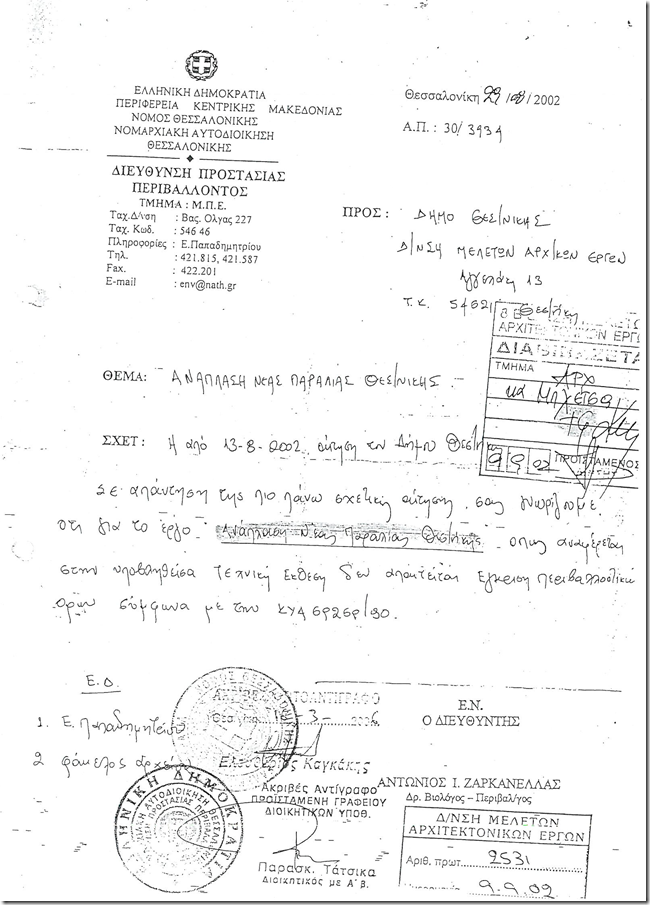 ΕΛΛΗΝΙΚΗ ΔΗΜΟΚΡΑΤΙΑ
ΠΕΡΙΦΕΡΕΙΑ ΚΕΝΤΡΙΚΗΣ ΜΑΚΕΔΟΝΙΑΣ
ΝΟΜΟΣ ΘΕΣΣΑΛΟΝΙΚΗΣ
ΝΟΜΑΡΧΙΑΚΗ ΑΥΤΟΔΙΟΙΚΗΣΗ
ΘΕΣΣΑΛΟΝΙΚΗΣ
ΔΙΕΥΘΥΝΣΗ ΠΡΟΣΤΑΣΙΑΣ
ΠΕΡΙΒΑΛΛΟΝΤΟΣ
ΤΜΗΜΑ : Μ.Π.Ε.
Ταχ.Δ/νση : Βας. Ολγας 227
Ταχ. Κωδ. : 546 46
Πληροφορίες : Ε.Παπαδημητρίου
Τηλ. : 421.815, 421.587
Fax. : 422.201
E-mail : env@nath.gr
Θεσσαλονίκη 29/08/2002
Α.Π. : 30/3934
ΠΡΟΣ : ΔΗΜΟ ΘΕΣ/ΝΙΚΗΣ
Δ/ΝΣΗ ΜΕΛΕΤΩΝ ΑΡΧ/ΚΩΝ ΕΡΓΩΝ
Αγγελάκη 13
Τ.Κ. 54621 Θεσ/νίκη
ΑΡΧΙΤΕΚΤΟΝΙΚΩΝ ΕΡΓΩ
ΤΜΗΜΑ ΑΡΧ
κα
9 9 02 ΠΡΟΪΣΤΑΜΕΝΟΣ
ΘΕΜΑ: ΑΝΑΠΛΑΣΗ ΝΕΑΣ ΠΑΡΑΛΙΑΣ ΘΕΣ/ΝΙΚΗΣ.
ΣΧΕΤ : Η από 13-8-2002 αίτηση του Δήμου Θεσ/νίκης
Σε απάντηση της πιο πάνω σχετικής αίτησης, σας γνωρίζουμε
οτι για το έργο Ανάπλαση Νέας Παραλίας Θεσ/νίκης οπως αναφέρεται
στην υποβληθείσα τεχνική έκθεση δεν απαιτείται έγκριση περιβαλλοντικών
όρων σύμφωνα με την ΚΥΑ 69269/90.
Ε.Δ.
1. Ε. Παπαδημητρίου
2 φάκελος αρχείου
Ε.Ν.
Ο ΔΙΕΥΘΥΝΤΗΣ
ΑΝΤΩΝΙΟΣ Ι. ΖΑΡΚΑΝΕΛΛΑΣ
Δρ. Βιολόγος – Περιβαλ/γος
Ελευθέριος Καγκάκης
Ακριβές Αντίγραφο
ΠΡΟΪΣΤΑΜΕΝΗ ΓΡΑΦΕΙΟΥ
ΔΙΟΙΚΗΤΙΚΩΝ ΥΠΟΘ.
Παρασκ. Τάτσικα
Διοικητικός με Α΄ β.
ΕΛΛΗΝΙΚΗ ΔΗΜΟΚΡΑΤΙΑ
Δ/ΝΣΗ ΜΕΛΕΤΩΝ
ΑΡΧΙΤΕΚΤΟΝΙΚΩΝ ΕΡΓΩΝ
Αριθ. πρωτ. 2531
9.9.02